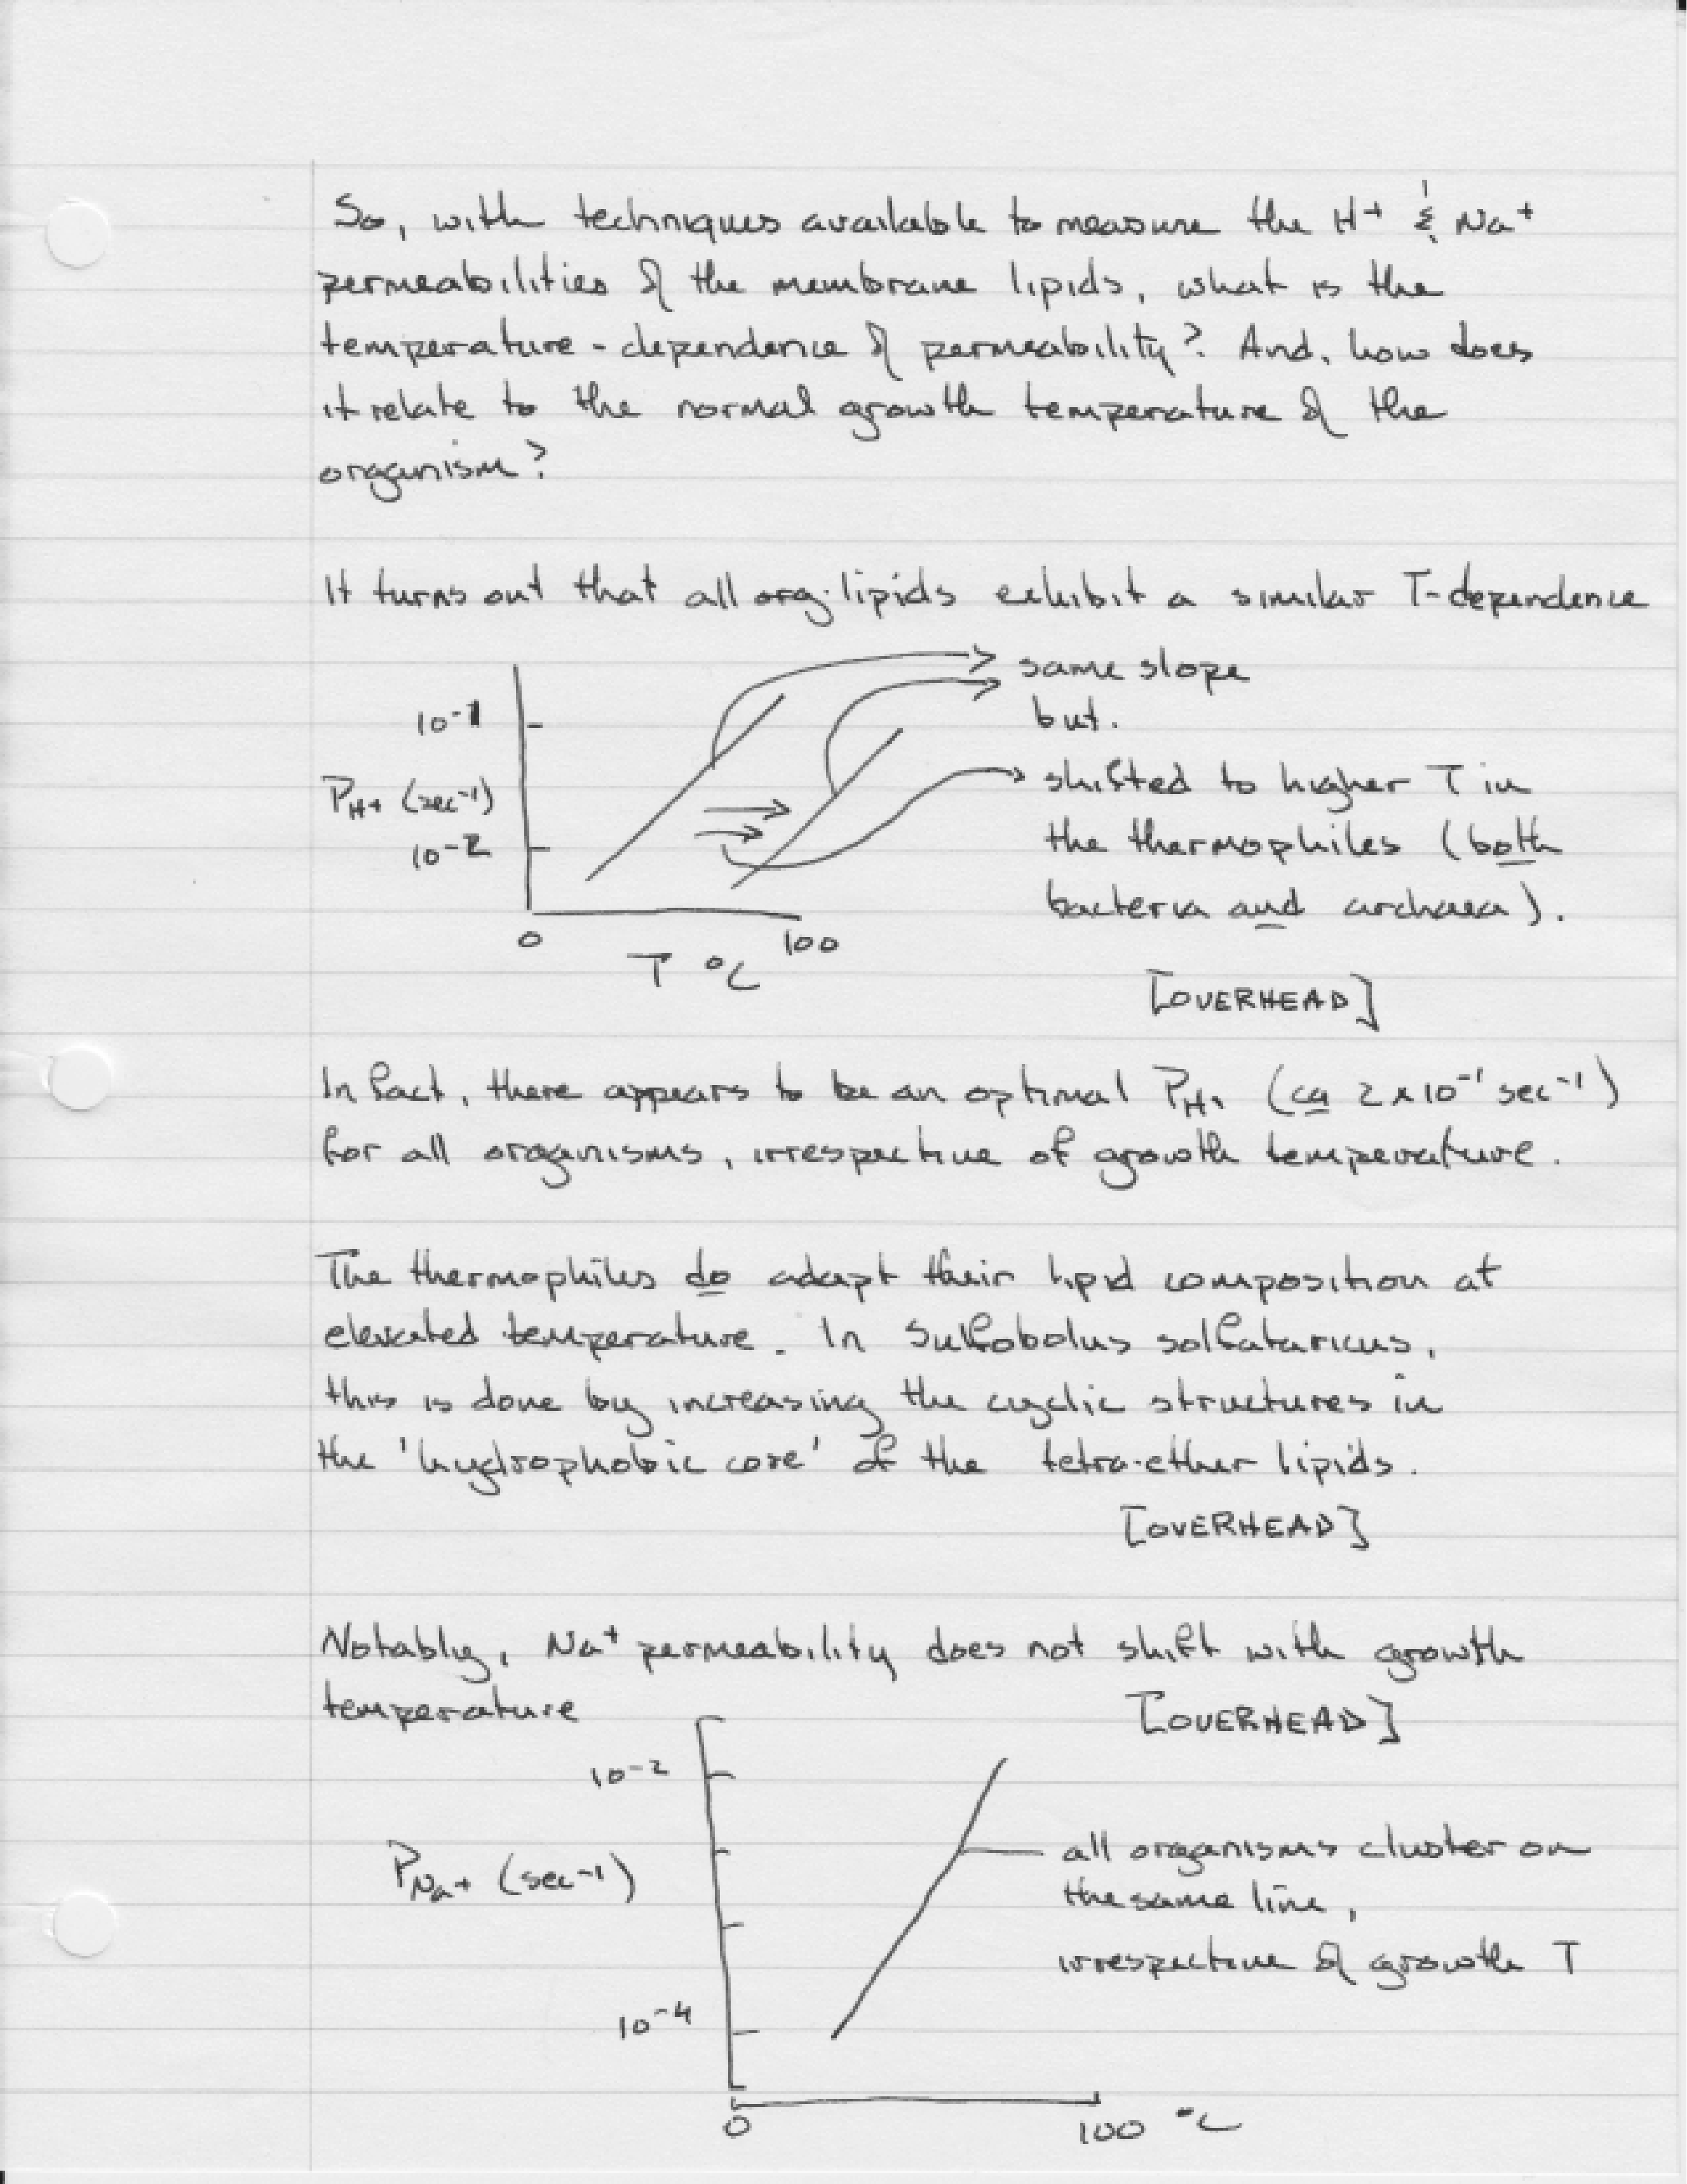 So, with techniques available to measure the H+ & Na+
permeabilities of the membrane lipids, what is the
temperature-dependence of permeability? And, how does
it relate to the normal growth temperature of the
organism?
It turns out that all org. lipids exhibit a similar T-dependence
same slope
but.
shifted to higher T in
the thermophiles (both
bacteria and archaea).
10⁻¹
P_H+ (sec⁻¹)
10⁻²
0
100
T °C
[OVERHEAD]
In fact, there appears to be an optimal P_H+ (ca 2 x 10⁻¹ sec⁻¹)
for all organisms, irrespective of growth temperature.
The thermophiles do adapt their lipid composition at
elevated temperature. In Sulfobolus solfataricus,
this is done by increasing the cyclic structures in
the 'hydrophobic core' of the tetra-ether lipids.
[OVERHEAD]
Notably, Na+ permeability does not shift with growth
temperature
[OVERHEAD]
10⁻²
P_Na+ (sec⁻¹)
10⁻⁴
0
100 °C
all organisms cluster on
the same line,
irrespective of growth T